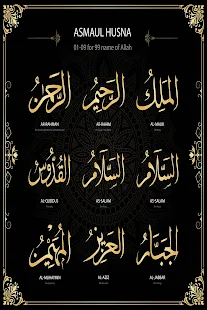 ASMAUL HUSNA
01-09 for 99 name of Allah
المَلِكُ الرَّحِيمُ الرَّحْمَنُ
AR-RAHMAN AR-RAHIM AL-MALIK
السَّلَامُ السَّلَامُ القُدُّوسُ
AL-QUDDUS AS-SALAM AS-SALAM
الجَبَّارُ العَزِيزُ المُهَيْمِنُ
AL-AZIZ AL-JABBAR